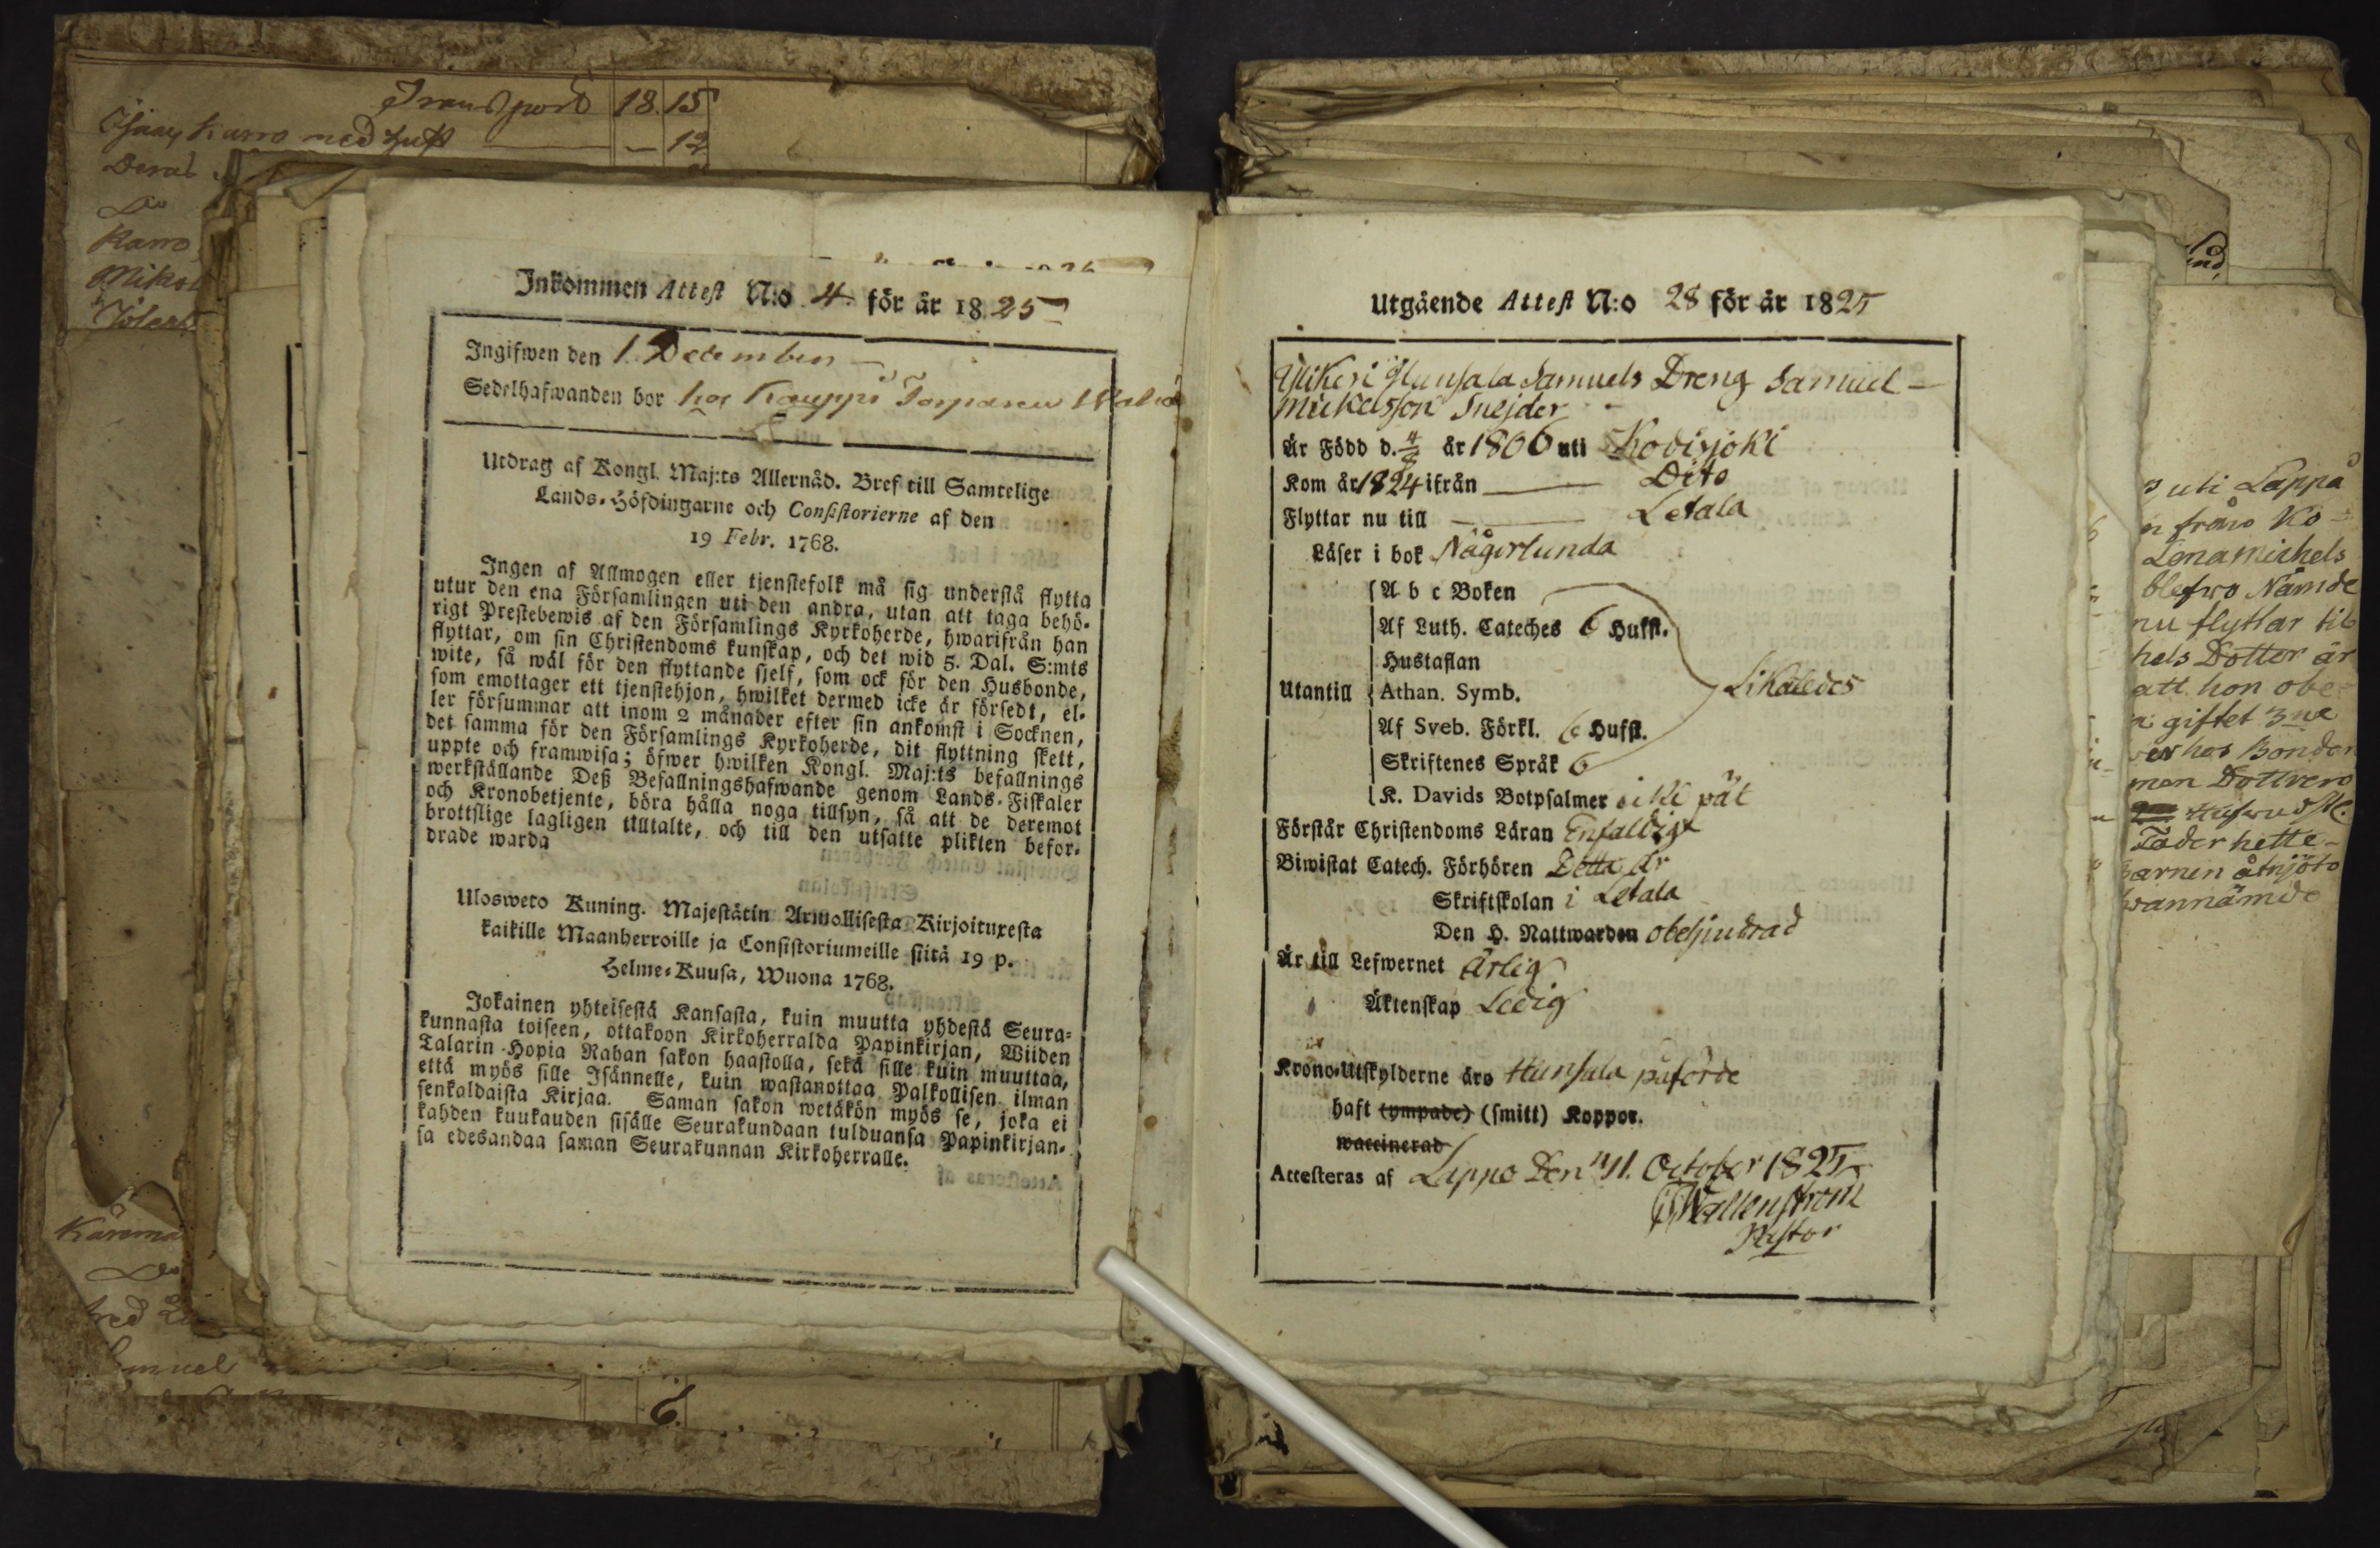 Transport 18. 15
Karro med hust — 12
Karro
Inkommen Attest N:o 4. för år 18.25
Ingifwen den 1. December
Sedelhafwanden bor hos Kauppi Torparen
Utdrag af Kongl. Maj:ts Allernåd. Bref till Samtelige
Lands-Höfdingarne och Consistorierne af den
19 Febr. 1768.
Ingen af Allmogen eller tjenstefolk må sig understå flytta
utur den ena Församlingen uti den andra, utan att taga behö-
rigt Prestebewis af den Församlings Kyrkoherde, hwarifrån han
flyttar, om sin Christendoms kunskap, och det wid 5. Dal. S:mts
wite, så wäl för den flyttande sjelf, som ock för den Husbonde,
som emottager ett tjenstehjon, hwilket dermed icke är försedt, el-
ler försummar att inom 2 månader efter sin ankomst i Socknen,
det samma för den Församlings Kyrkoherde, dit flyttning skett,
uppte och framwisa; öfwer hwilken Kongl. Maj:ts befallnings
werkställande Deß Befallningshafwande genom Lands-Fiskaler
och Kronobetjente, böra hålla noga tillsyn, så att de deremot
brottslige lagligen tilltalte, och till den utsatte plikten befor-
drade warda
Ulosweto Kuning. Majestätin Armollisesta Kirjoituxesta
kaikille Maanherroille ja Consistoriumeille siitä 19 p.
Helme-Kuusa, Wuona 1768.
Jokainen yhteisestä Kansasta, kuin muutta yhdestä Seura-
kunnasta toiseen, ottakoon Kirkoherralda Papinkirjan, Wiiden
Talarin Hopia Rahan sakon haastolla, sekä sille kuin muuttaa,
että myös sille Isännelle, kuin wastanottaa Palkollisen ilman
senkaldaista Kirjaa. Saman sakon wetäkön myös se, joka ei
kahden kuukauden sisälle Seurakundaan tulduansa Papinkirjan-
sa edesandaa saman Seurakunnan Kirkoherralle.
6.
Utgående Attest N:o 28 för år 1825
Hunsala Samuels Dreng Samuel
Mickelsson Snejder
Är Född d. 4/8 år 1806 uti Kodisjoki
Kom år 1824 ifrån — Dito
Flyttar nu till — Letala
Läser i bok Någorlunda
A b c Boken
Af Luth. Cateches 6 Hufst.
Hustaflan
Utantill Athan. Symb. Likaledes
Af Sveb. Förkl. 6 Hufst.
Skriftenes Språk 6
K. Davids Botpsalmer
Förstår Christendoms Läran Enfaldigt
Biwistat Catech. Förhören Detta år
Skriftskolan i Letala
Den H. Nattwarden obehindrad
Är till Lefwernet Ärlig
Äktenskap Ledig
Krono-Utskylderne äro Hunsala påförde
haft (ympade) (smitt) Koppor.
waccinerad
Attesteras af Lappo Den 11. October 1825
Wallenström
Pastor
uti Lappå
n från Ko-
Lena Michels
blefwo Nämde
nu flyttar til
hels Dotter är
att hon obe-
giftet 3ne
hos Bonden
Fader hette
arnen åtnjöto
wannämde